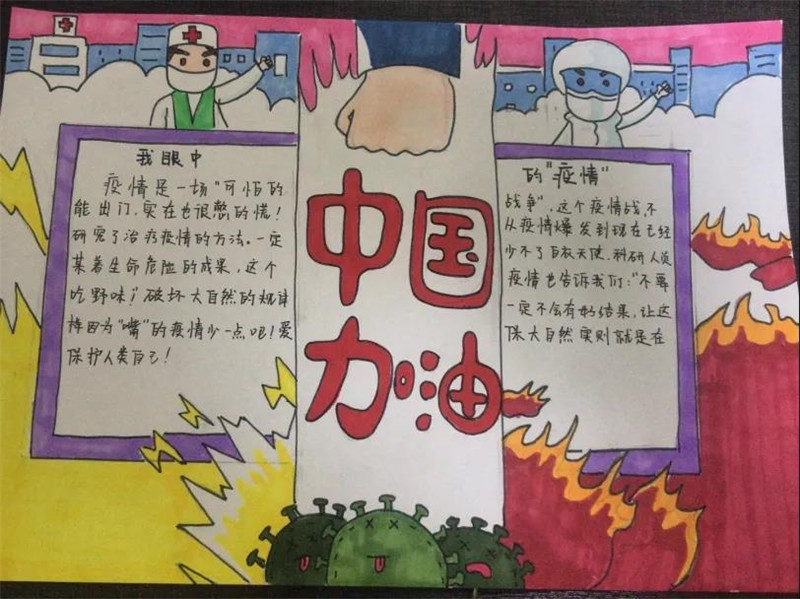 我眼中
的"疫情"
疫情是一场"可怕的
战争",这个疫情战,不
能出门,实在也很憋的慌!
从疫情爆发到现在已经
研究了治疗疫情的方法。一定
少不了白衣天使,科研人员
某着生命危险的成果,这个
疫情也告诉我们:"不要
吃野味!"破坏大自然的规律
一定不会有好结果,让这
样因为"嘴"的疫情少一点吧!爱
保大自然实则就是在
保护人类自己!
中国
加油